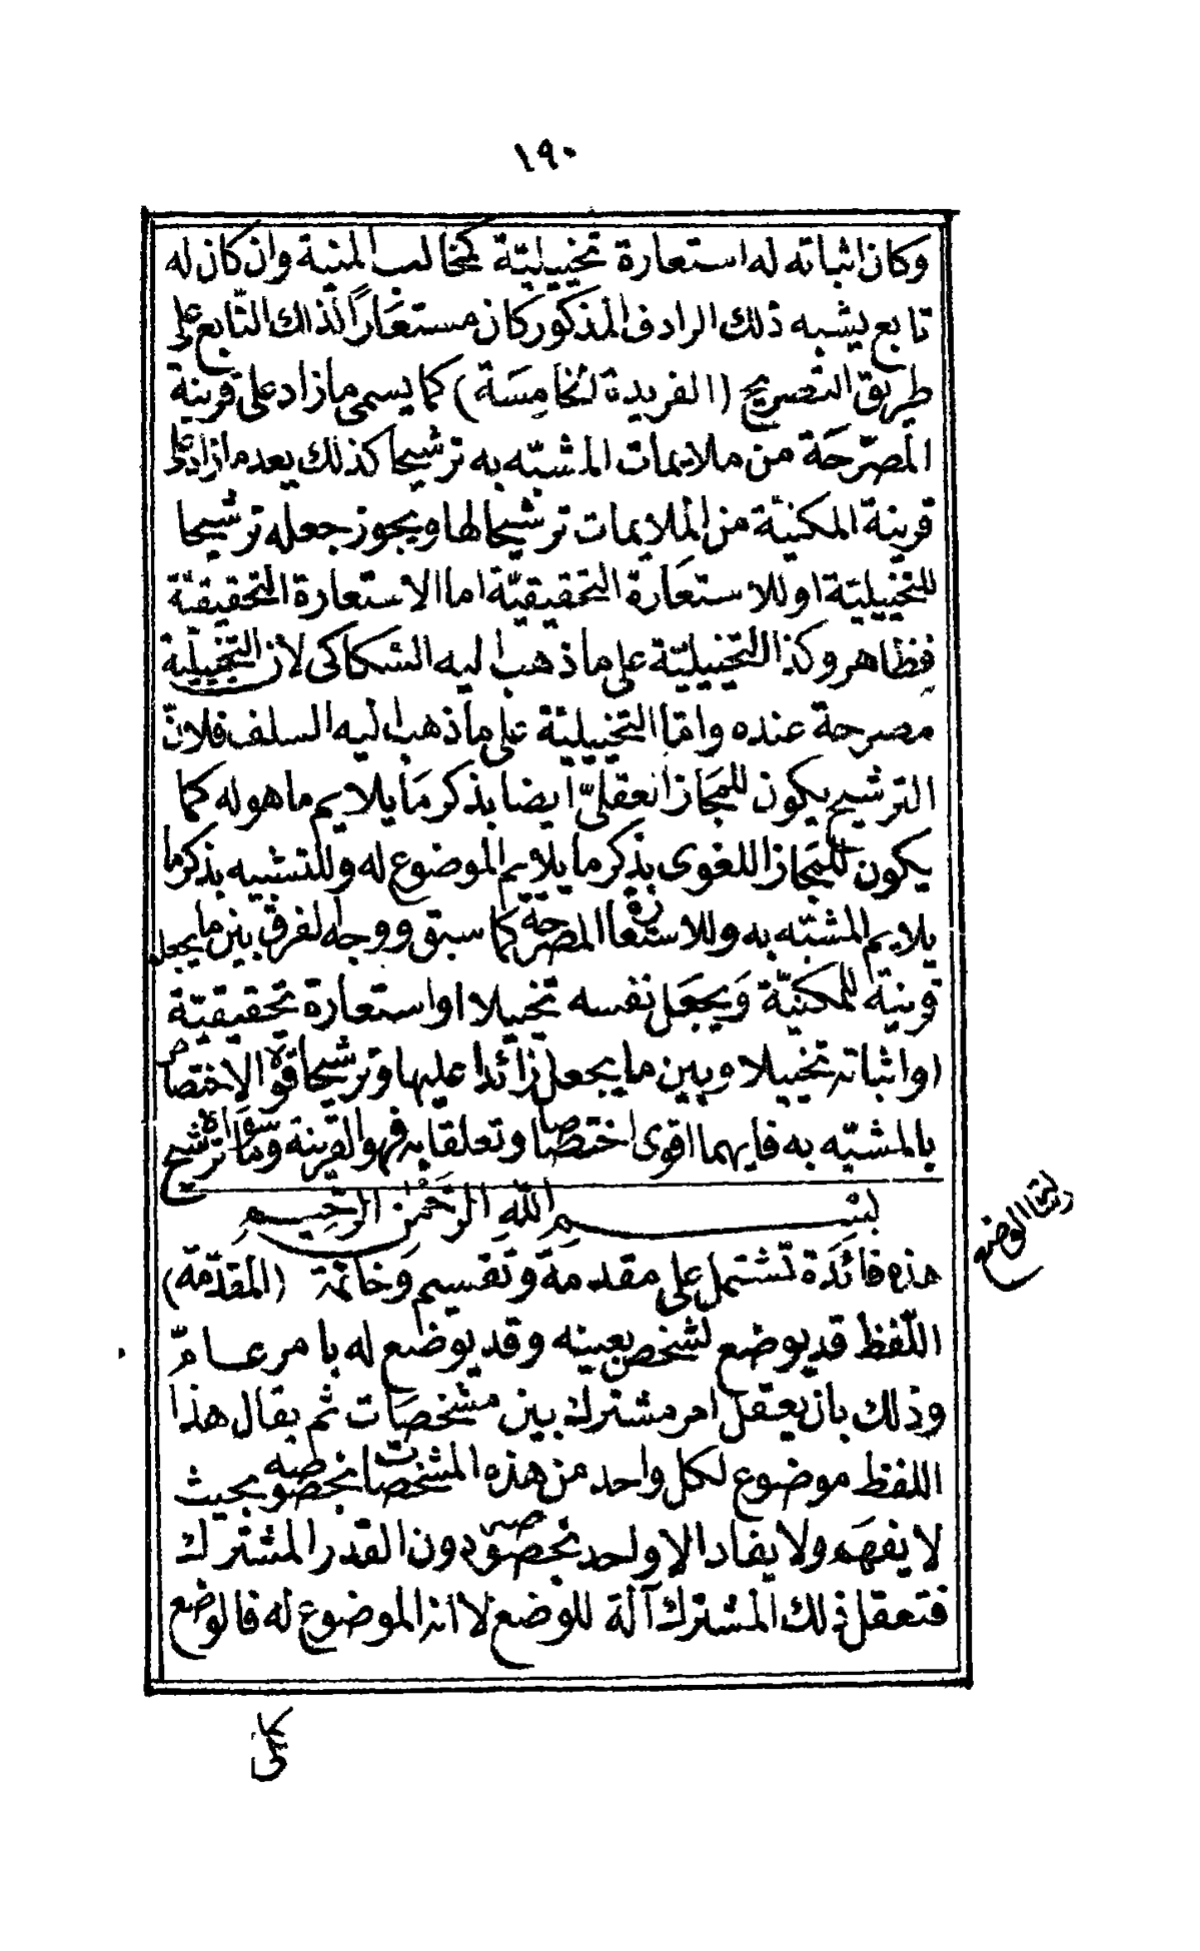 ١٩٠
وكان اثباته له استعارة تخييليّة كمخالب المنية وان كان له
تابع يشبه ذلك الرادف المذكور كان مستعاراً لذلك التّابع على
طريق التصريح (الفريدة الخامسَة) كما يسمى مازاد على قرينة
المصرّحَة من ملايمات المشبّه به ترشيحا كذلك يعد مازاد على
قرينة المكنيّة من الملايمات ترشيحا لها ويجوز جعله ترشيحا
للتخييليّة او للاستعَارة التحقيقيّة اما الاستعارة التحقيقيّة
فظاهر وكذا التخييليّة على ما ذهب اليه السكاكى لان التخييليّة
مصرحة عنده وامّا التخييليّة على ما ذهب اليه السلف فلانّ
الترشيح يكون للمجَاز العقلىّ ايضا بذكر مَا يلايم ما هو له كما
يكون للمجَاز اللغوى بذكر ما يلايم الموضوع له وللتشبيه بذكر ما
يلايم المشبّه به وللاستعارة المصرحّة كما سبق ووجه الفرق بين ما يجعل
قرينة للمكنيّة وَيجعَل نفسه تخييلا او استعارة تحقيقيّة
او اثباته تخييلا وبين ما يجعل زائدا عليها وترشيحا قوّة الاختصاص
بالمشبّه به فايهما اقوى اختصاصا وتعلقا به فهو القرينة وما سوَاه ترشيح
بسْم اللّهِ الرّحَمْن الرّحيم
هذه فائدَة تشتمل على مقدمة وتقسيم وَخاتمة (المقدّمَة)
اللّفظ قد يوضع لشخص بعينه وقد يوضع له بامر عامّ
وذلك بان يعقل امر مشترك بين مشخصَات ثم يقال هذا
اللفظ موضوع لكل واحد من هذه المشخصات بخصوصه بحيث
لا يفهَم ولا يفاد الا واحد بخصوصه دون القدر المشترك
فتعقل ذلك المشترك آلة للوضع لا انه الموضوع له فالوضع